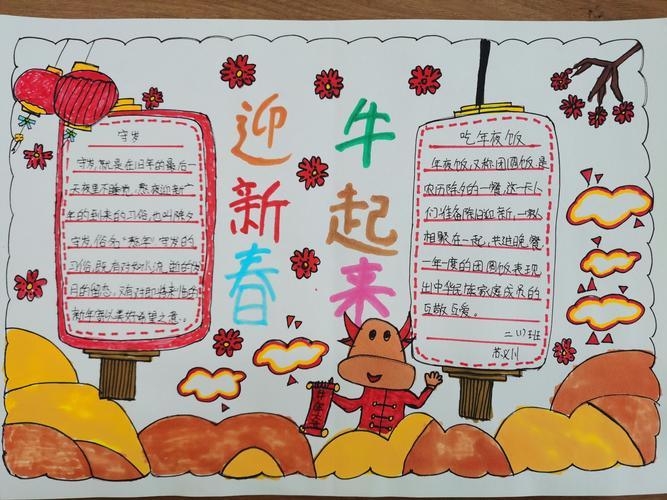 迎新春
牛起来
守岁
守岁,就是在旧年的最后一
天夜里不睡觉,熬夜迎新
年的到来的习俗,也叫除夕
守岁,俗名"熬年"守岁的
习俗,既有对如水流逝的岁
月的,又有对即将来临的
新年寄以美好希望之意。
吃年夜饭
年夜饭,又称团圆饭,是
农历除夕的一餐,这一天人
们准备除旧迎新,一家人
相聚在一起,共进晚餐
一年一度的团圆饭表现
出中华民族家庭成员的
互敬互爱。
二(1)班